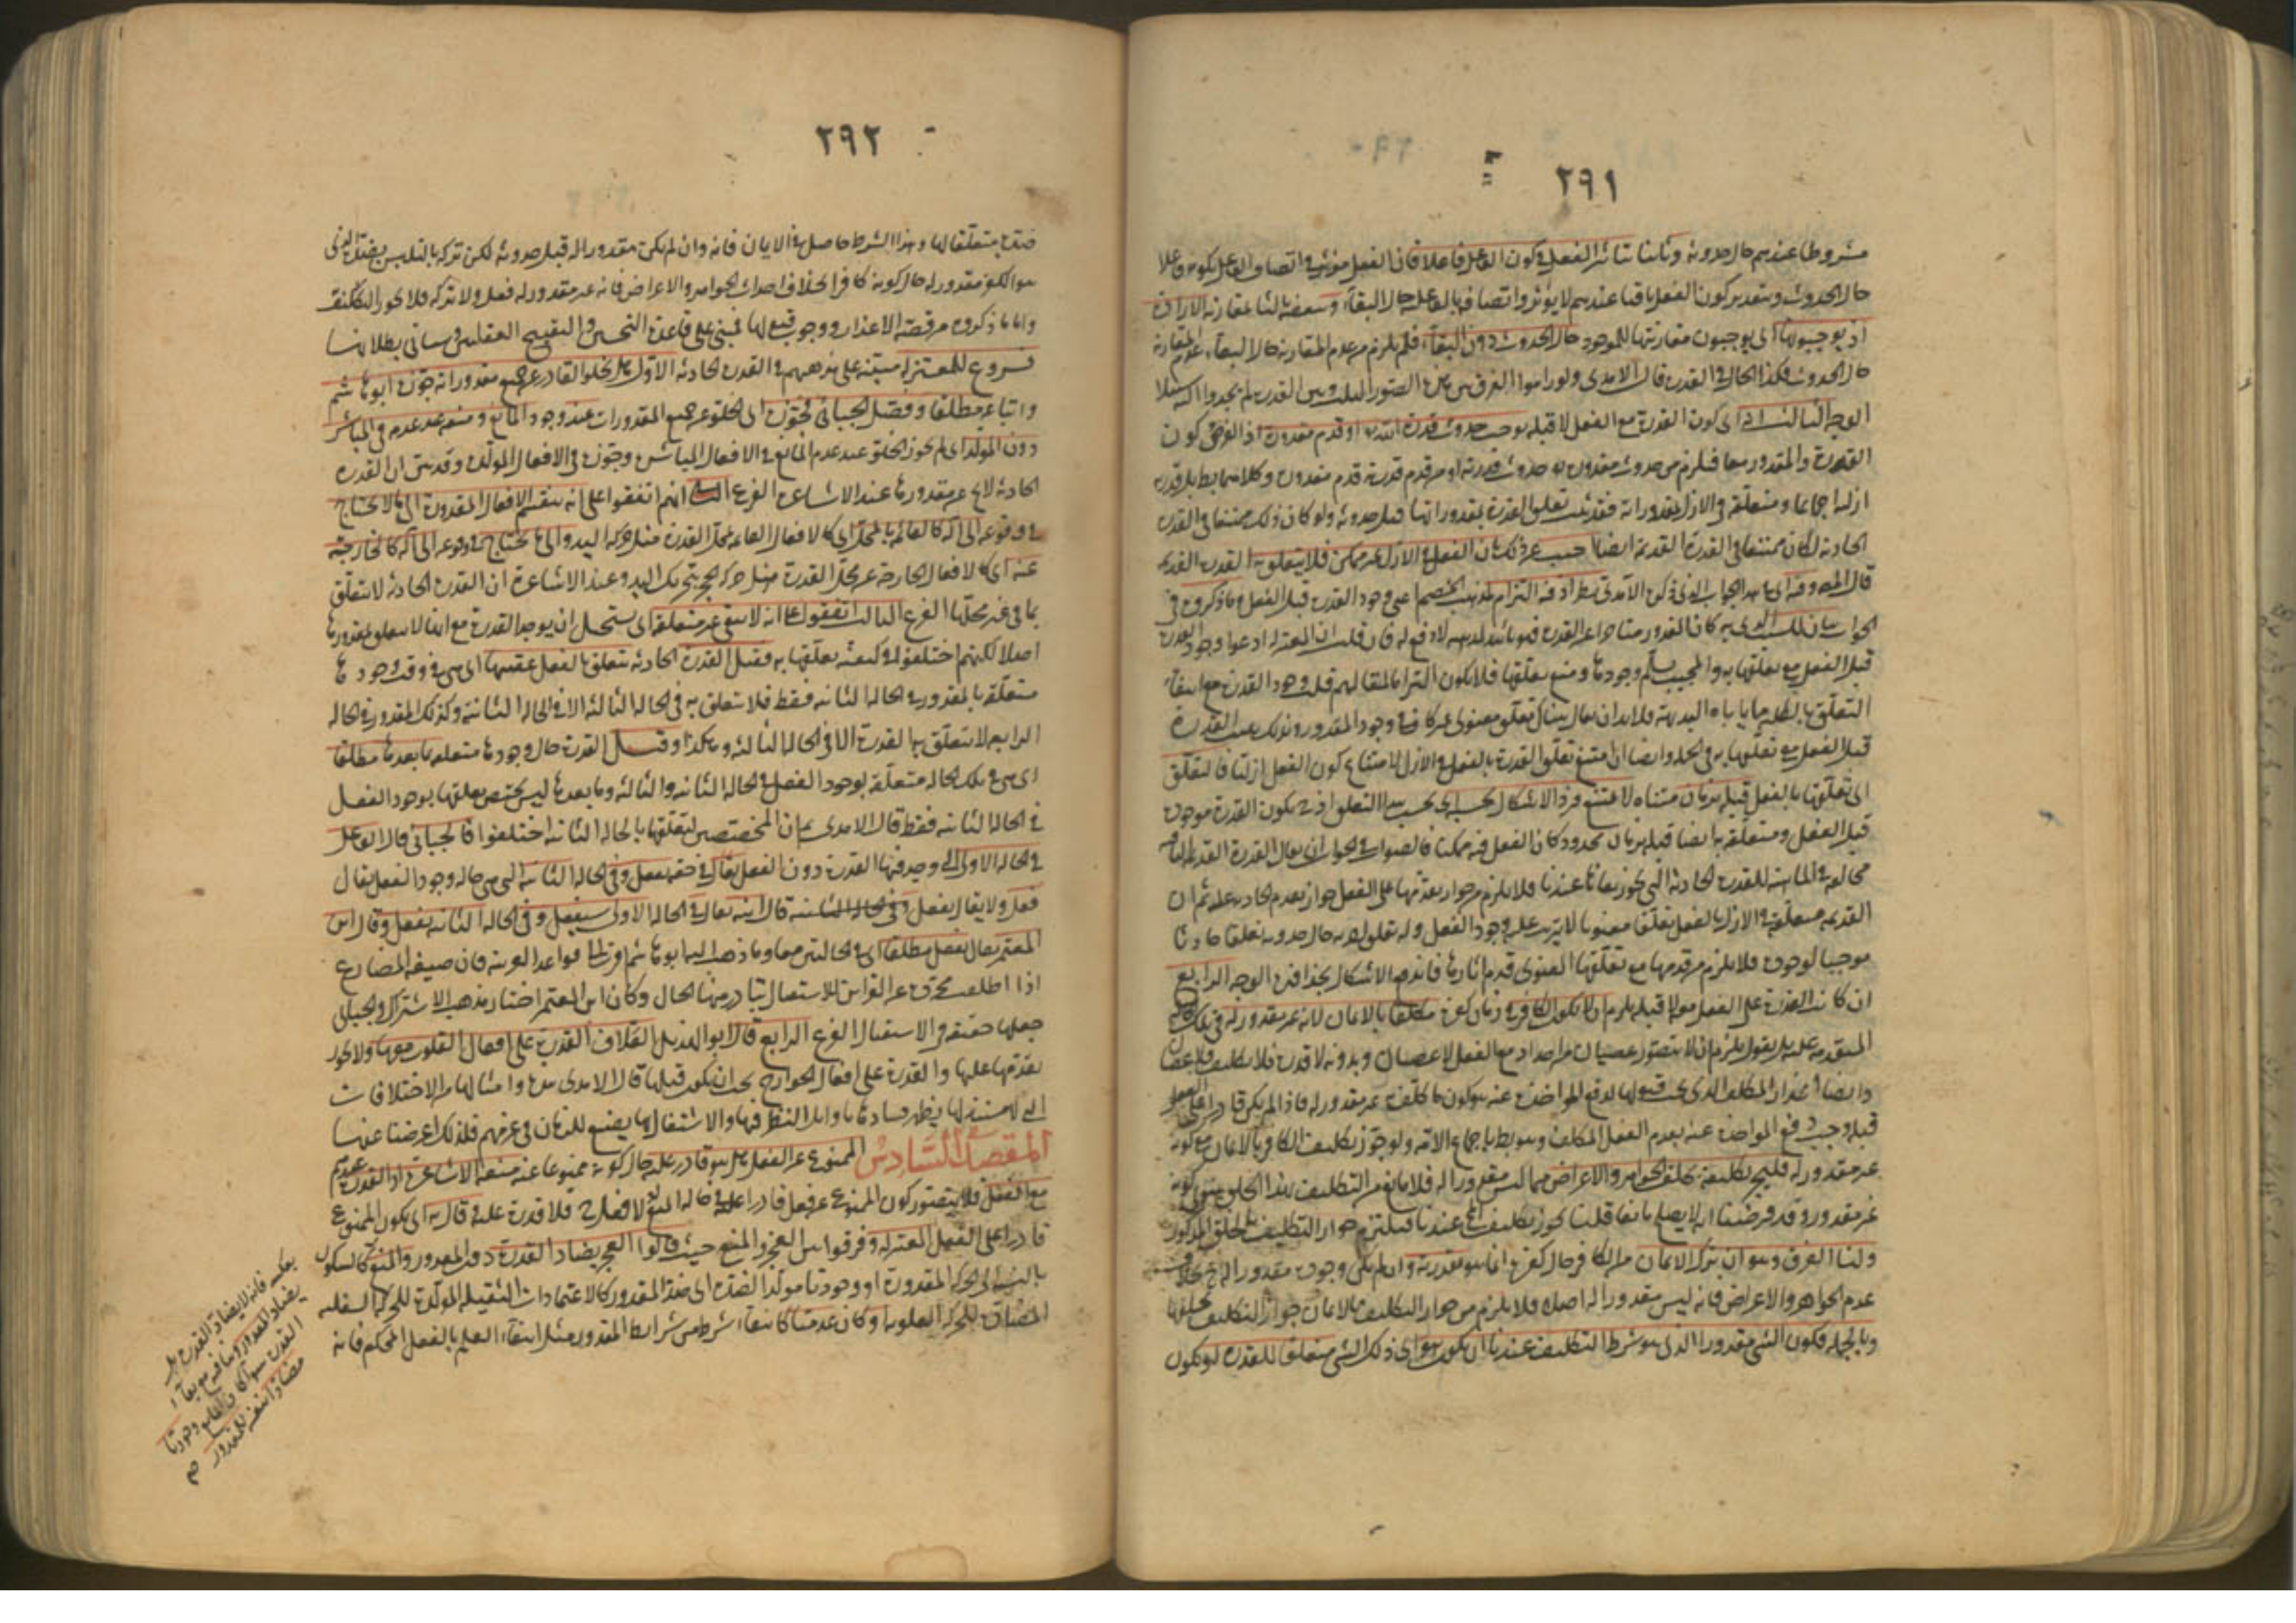 ٢٩١
مشروطا عندهم حال حدوثه وثالثا تأثير الفعل في كون الفاعل فاعلا فان الفعل مؤثر في اتصاف الفاعل بكونه فاعلا
حال الحدوث وبتقدير كون الفعل باقيا عندهم لا يؤثر في اتصافه بالفاعل حال البقاء وبعضه بالثا مقارنة الارادة
اذ يوجبونها اى يوجبون مقارنتها للموجود حال الحدوث دون البقاء فلم يلزم من عدم المقارنة حال البقاء عدم المقارنة
حال الحدوث فكذا الحال في القدرة قال الامدى ولو راموا الفرق بين هذه الصور الثلث وبين القدرة لم يجدوا اليه سبيلا
الوجه الثالث انه اى كون القدرة مع الفعل لا قبله يوجب حدوث قدرة الله او قدم مقدوره اذ الفرض كون
القدرة والمقدور معا فيلزم من حدوث مقدوره حدوث قدرته او من قدم قدرته قدم مقدوره وكلاهما بط بل قدرته
ازلية اجماعا ومتعلقة في الازل بمقدوراته فقد ثبت تعلق القدرة بمقدوراتها قبل حدوثه ولو كان ذلك ممتنعا في القدرة
الحادثة لكان ممتنعا في القدرة القديمة ايضا اجيب عن ذلك بان الفعل في الازل غير ممكن فلا يتعلق به القدرة القديمة
قال المص وفيه اى في هذا الجواب الذى ذكره الآمدى نظر اذ فيه التزام لمذهب الخصم اعنى وجود القدرة قبل الفعل وما ذكروه في
الجواب بيان للسبب الذى به كان المقدور متأخرا عن القدرة فهو تأييد لمذهبه لا دفع له فان قلت ان المعتزلة ادعوا وجود القدرة
قبل الفعل مع تعلقها به والمجيب سلم وجودها ومنع تعلقها فلا يكون التزاما لمقالتهم قلت وجود القدرة مع انتفاء
التعلق بالكلية مما ياباه البديهة فلا بد ان يقال هناك تعلق معنوى غير كاف في وجود المقدور وبذلك يثبت القدرة
قبل الفعل مع تعلقها به في الجملة وايضا ان امتنع تعلق القدرة بالفعل في الازل لامتناع كون الفعل ازليا فالتعلق
اى تعلقها بالفعل قبله بزمان متناه لا يمتنع فرد الاشكال بحسبه اى بحسب هذا التعلق اذ ح يكون القدرة موجودة
قبل الفعل ومتعلقة به ايضا قبله بزمان محدود كان الفعل فيه ممكنا فالصواب في الجواب ان يقال القدرة القديمة الباقية
مخالفة في الماهية للقدرة الحادثة التى لا يجوز بقاؤها عندنا فلا يلزم من جواز تقدمها على الفعل جواز تقدم الحادثة عليه ثم ان
القديمة متعلقة في الازل بالفعل تعلقا معنويا لا يترتب عليه وجود الفعل وله تعلق اخر به حال حدوثه تعلقا حادثا
موجبا لوجوده فلا يلزم من قدمها مع تعلقها المعنوى قدم اثارها فاندفع الاشكال بحذافيره الوجه الرابع
ان كانت القدرة على الفعل معه لا قبله يلزم ان لا يكون الكافر في زمان كفره مكلفا بالايمان لانه غير مقدور له في تلك
المتقدمة عليه بل نقول يلزم ان لا يتصور عصيان من احد اذ مع الفعل لا عصيان وبدونه لا قدرة فلا تكليف فلا عصيان
وايضا اعذار المكلف الذى يجب قبولها لدفع المؤاخذة عنه هو كون ما كلف به غير مقدور له فاذا لم يكن قادرا على الفعل
قبله وجب دفع المؤاخذة عنه بعدم الفعل المكلف به وهو بط باجماع الامة ولو جوز تكليف الكافر بالايمان مع كونه
غير مقدور له فليجز تكليفه بخلق الجواهر والاعراض مما ليس مقدورا له فلا مانع من التكليف بهذا الخلق سوى كونه
غير مقدور وقد فرضنا انه لا يصلح مانعا قلنا يجوز تكليف المح عندنا فيلتزم جواز التكليف بخلق المذكور
ولنا الفرق وهو ان ترك الايمان من الكافر حال كفره انما هو بقدرته وان لم يكن وجوده مقدورا له ح بخلاف
عدم الجواهر والاعراض فانه ليس مقدورا له اصلا فلا يلزم من جواز التكليف بالايمان جواز التكليف بخلقها
وبالجملة فكون الشئ مقدورا الذى هو شرط التكليف عندنا ان يكون هو اى ذلك الشئ متعلقا للقدرة او يكون
٢٩٢
ضده متعلقا لها وهذا الشرط حاصل في الايمان فانه وان لم يكن مقدورا له قبل حدوثه لكن تركه بالتلبس بضده الذى
هو الكفر مقدور له حال كونه كافرا بخلاف احداث الجواهر والاعراض فانه غير مقدور له فعله ولا تركه فلا يجوز التكليف به
واما ما ذكروه من قصة الاعذار ووجوب قبولها فمبنى على قاعدة التحسين والتقبيح العقليين وسيأتى بطلانها
فروع للمعتزلة مبنية على مذهبهم في القدرة الحادثة الاول هل يخلو القادر عن جميع مقدوراته جوزه ابو هاشم
واتباعه مطلقا وفصل الجبائى فجوزه اى الخلو عن جميع المقدورات عند وجود المانع ومنعه عند عدمه في المباشر
دون المولد اى لم يجوز الخلو عند عدم المانع في الافعال المباشرة وجوزه في الافعال المولدة وقد سبق ان القدرة
الحادثة لا تخلو عن مقدورها عند الاشاعرة الفرع الثانى انهم اتفقوا على انه ينقسم الافعال المقدورة الى ما لا يحتاج
في وقوعه الى آلة كالقائمة بالمحل اى كالافعال القائمة بمحل القدرة مثل حركة اليد والى ما يحتاج في وقوعه الى آلة كالخارجة
عنه اى كالافعال الخارجة عن محل القدرة مثل حركة الحجر بتحريك اليد وعند الاشاعرة ان القدرة الحادثة لا تتعلق
بما في غير محلها الفرع الثالث اتفقوا على انه لا تبقى غير متعلقة اى يستحيل ان يوجد القدرة مع انها لا تتعلق بمقدورها
اصلا لكنهم اختلفوا في كيفية تعلقها به فقيل القدرة الحادثة تتعلق بالفعل عقيبها اى هى في وقت وجودها
متعلقة بالمقدور في الحالة الثانية فقط فلا تتعلق به في الحالة الثالثة الا في الحالة الثانية وكذلك المقدور في الحالة
الرابعة لا يتعلق به القدرة الا في الحالة الثالثة وهكذا وقيل القدرة حال وجودها متعلقة بما بعدها مطلقا
اى هى في تلك الحالة متعلقة بوجود الفعل في الحالة الثانية والثالثة وما بعدها ليس يختص تعلقها بوجود الفعل
في الحالة الثانية فقط قال الامدى ثم ان المخصصين لتعلقها بالحالة الثانية اختلفوا فالجبائى قال الفاعل
في الحالة الاولى التى وجد فيها القدرة دون الفعل يقال في حقه يفعل وفى الحالة الثانية التى هى حالة وجود الفعل يقال
فعل ولا يقال يفعل وقال ابنه يقال في الحالة الاولى سيفعل وفى الحالة الثانية يفعل وقال ابن
المعتمر يقال يفعل مطلقا اى في الحالتين معا وما ذهب اليه ابو هاشم اقرب الى قواعد العربية فان صيغة المضارع
اذا اطلقت مجردة عن القرائن للاستعمال تبادر منها الحال وكان ابن المعتمر اختار مذهب الاشتراك والجبائى
جعلها حقيقة في الاستقبال الفرع الرابع قال ابو الهذيل العلاف القدرة على افعال القلوب معها ولا يجوز
تقدمها عليها والقدرة على افعال الجوارح يجب ان يكون قبلها قال الامدى هذه وامثالها من الاختلافات
التى لا مستند لها يظهر فسادها باوائل النظر فيها والاشتغال بها يضيع للزمان في غير مهم فلذلك اعرضنا عنها
المقصد السادس الممنوع عن الفعل هل هو قادر عليه حال كونه ممنوعا عنه منعه الاشاعرة اذ القدرة عندهم
مع الفعل فلا يتصور كون الممنوع عن فعل قادرا عليه في حالة المنع اذ لا فعل ح فلا قدرة عليه وقال به اى بكون الممنوع
قادرا على الفعل المعتزلة وفرقوا بين العجز والمنع حيث قالوا العجز يضاد القدرة دون المقدور والمنع كالسكون
بالنسبة الى الحركة المقدورة او وجوديا مولدا لضده اى ضد المقدور كالاعتمادات الثقيلة المولدة للحركة السفلية
المضادة للحركة العلوية او كان عدميا كانتفاء شرط من شرائط المقدور مثل انتفاء العلم بالفعل المحكم فانه
بعكسه فانه لا يضاد القدرة بل
يضاد المقدور وينافيه مع بقاء
القدرة سواء كان المانع وجوديا
مضادا بنفسه للمقدور صح